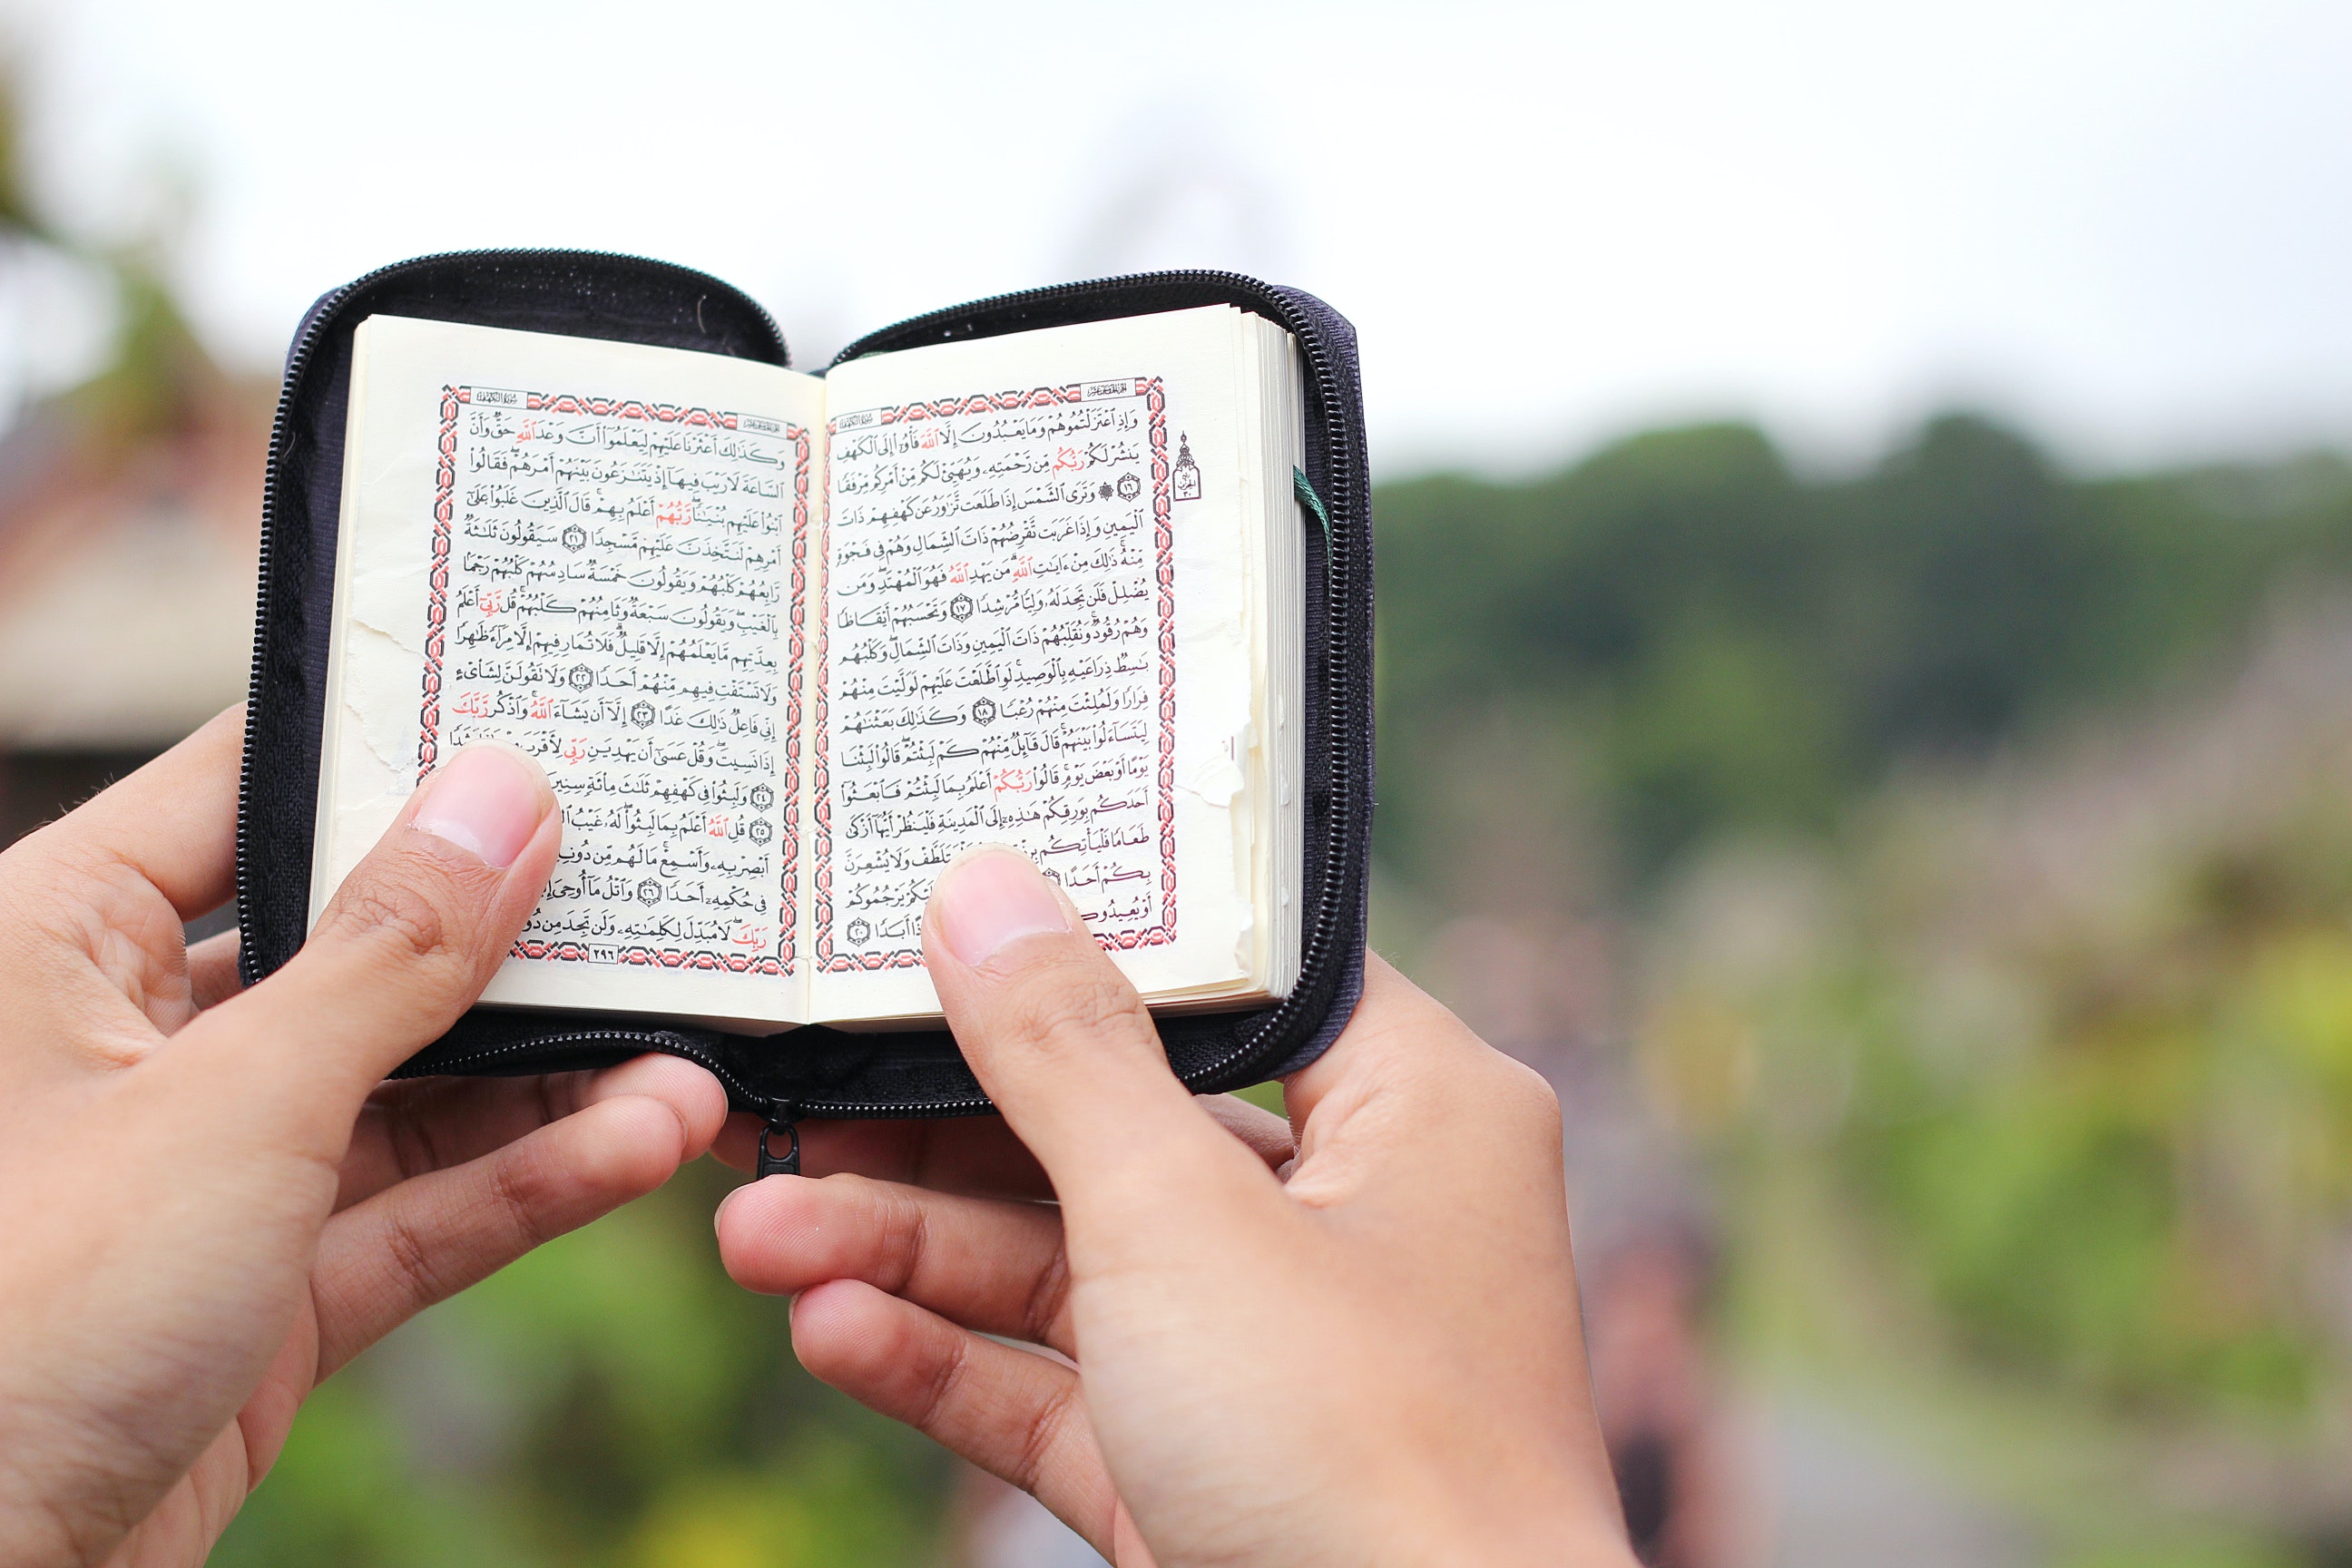 سورة الكهف
الجزء الخامس عشر
وَإِذِ ٱعْتَزَلْتُمُوهُمْ وَمَا يَعْبُدُونَ إِلَّا ٱللَّهَ فَأْوُۥٓا۟ إِلَى ٱلْكَهْفِ
يَنشُرْ لَكُمْ رَبُّكُم مِّن رَّحْمَتِهِۦ وَيُهَيِّئْ لَكُم مِّنْ أَمْرِكُم مِّرْفَقًا
١٦ ۞ وَتَرَى ٱلشَّمْسَ إِذَا طَلَعَت تَّزَٰوَرُ عَن كَهْفِهِمْ ذَاتَ
ٱلْيَمِينِ وَإِذَا غَرَبَت تَّقْرِضُهُمْ ذَاتَ ٱلشِّمَالِ وَهُمْ فِى فَجْوَةٍ
مِّنْهُ ۚ ذَٰلِكَ مِنْ ءَايَٰتِ ٱللَّهِ ۗ مَن يَهْدِ ٱللَّهُ فَهُوَ ٱلْمُهْتَدِ ۖ وَمَن
يُضْلِلْ فَلَن تَجِدَ لَهُۥ وَلِيًّا مُّرْشِدًا ١٧ وَتَحْسَبُهُمْ أَيْقَاظًا
وَهُمْ رُقُودٌ ۚ وَنُقَلِّبُهُمْ ذَاتَ ٱلْيَمِينِ وَذَاتَ ٱلشِّمَالِ ۖ وَكَلْبُهُم
بَٰسِطٌ ذِرَاعَيْهِ بِٱلْوَصِيدِ ۚ لَوِ ٱطَّلَعْتَ عَلَيْهِمْ لَوَلَّيْتَ مِنْهُمْ
فِرَارًا وَلَمُلِئْتَ مِنْهُمْ رُعْبًا ١٨ وَكَذَٰلِكَ بَعَثْنَٰهُمْ
لِيَتَسَآءَلُوا۟ بَيْنَهُمْ ۚ قَالَ قَآئِلٌ مِّنْهُمْ كَمْ لَبِثْتُمْ ۖ قَالُوا۟ لَبِثْنَا
يَوْمًا أَوْ بَعْضَ يَوْمٍ ۚ قَالُوا۟ رَبُّكُمْ أَعْلَمُ بِمَا لَبِثْتُمْ فَٱبْعَثُوٓا۟
أَحَدَكُم بِوَرِقِكُمْ هَٰذِهِۦٓ إِلَى ٱلْمَدِينَةِ فَلْيَنظُرْ أَيُّهَآ أَزْكَىٰ
طَعَامًا فَلْيَأْتِكُم وَلْيَتَلَطَّفْ وَلَا يُشْعِرَنَّ
بِكُمْ أَحَدًا يَرْجُمُوكُمْ
أَوْ أَبَدًا ٢٠
الحزب ٣٠
سورة الكهف
الجزء الخامس عشر
وَكَذَٰلِكَ أَعْثَرْنَا عَلَيْهِمْ لِيَعْلَمُوٓا۟ أَنَّ وَعْدَ ٱللَّهِ حَقٌّ وَأَنَّ
ٱلسَّاعَةَ لَا رَيْبَ فِيهَآ إِذْ يَتَنَٰزَعُونَ بَيْنَهُمْ أَمْرَهُمْ ۖ فَقَالُوا۟
ٱبْنُوا۟ عَلَيْهِم بُنْيَٰنًا ۖ رَّبُّهُمْ أَعْلَمُ بِهِمْ ۚ قَالَ ٱلَّذِينَ غَلَبُوا۟ عَلَىٰٓ
أَمْرِهِمْ لَنَتَّخِذَنَّ عَلَيْهِم مَّسْجِدًا ٢١ سَيَقُولُونَ ثَلَٰثَةٌ
رَّابِعُهُمْ كَلْبُهُمْ وَيَقُولُونَ خَمْسَةٌ سَادِسُهُمْ كَلْبُهُمْ رَجْمًۢا
بِٱلْغَيْبِ ۖ وَيَقُولُونَ سَبْعَةٌ وَثَامِنُهُمْ كَلْبُهُمْ ۚ قُل رَّبِّىٓ أَعْلَمُ
بِعِدَّتِهِم مَّا يَعْلَمُهُمْ إِلَّا قَلِيلٌ ۗ فَلَا تُمَارِ فِيهِمْ إِلَّا مِرَآءً ظَٰهِرًا
وَلَا تَسْتَفْتِ فِيهِم مِّنْهُمْ أَحَدًا ٢٢ وَلَا تَقُولَنَّ لِشَا۟ىْءٍ
إِنِّى فَاعِلٌ ذَٰلِكَ غَدًا ٢٣ إِلَّآ أَن يَشَآءَ ٱللَّهُ ۚ وَٱذْكُر رَّبَّكَ
إِذَا نَسِيتَ وَقُلْ عَسَىٰٓ أَن يَهْدِيَنِ رَبِّى لِأَقْرَبَ
٢٤ وَلَبِثُوا۟ فِى كَهْفِهِمْ ثَلَٰثَ مِا۟ئَةٍ سِنِينَ
٢٥ قُلِ ٱللَّهُ أَعْلَمُ بِمَا لَبِثُوا۟ ۖ لَهُۥ غَيْبُ
أَبْصِرْ بِهِۦ وَأَسْمِعْ ۚ مَا لَهُم مِّن دُونِهِ
فِى حُكْمِهِۦٓ أَحَدًا ٢٦ وَٱتْلُ مَآ أُوحِىَ
رَبِّكَ ۖ لَا مُبَدِّلَ لِكَلِمَٰتِهِۦ وَلَن تَجِدَ مِن
٢٩٦